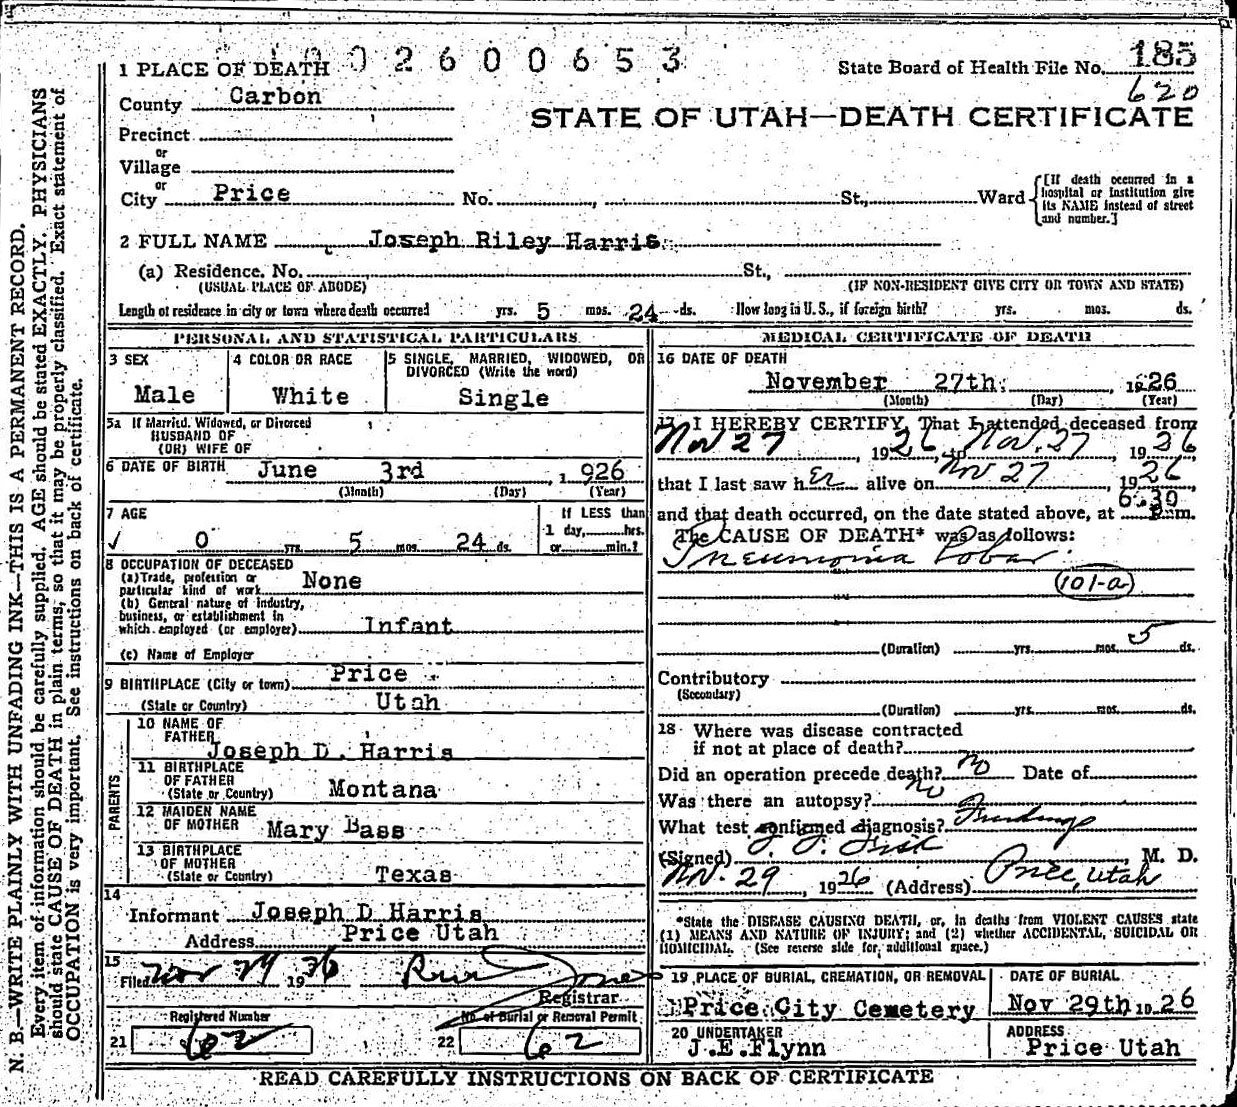 002600653
1 PLACE OF DEATH
State Board of Health File No. 185
620
County Carbon
STATE OF UTAH—DEATH CERTIFICATE
Precinct
or
Village
or
City Price No. St., Ward
[If death occurred in a hospital or institution give its NAME instead of street and number.]
2 FULL NAME Joseph Riley Harris
(a) Residence. No. St.,
(USUAL PLACE OF ABODE) (IF NON-RESIDENT GIVE CITY OR TOWN AND STATE)
Length of residence in city or town where death occurred yrs. 5 mos. 24 ds. How long in U. S., if foreign birth? yrs. mos. ds.
PERSONAL AND STATISTICAL PARTICULARS
3 SEX
Male
4 COLOR OR RACE
White
5 SINGLE, MARRIED, WIDOWED, OR
DIVORCED (Write the word)
Single
5a If Married, Widowed, or Divorced
HUSBAND OF
(OR) WIFE OF
6 DATE OF BIRTH June 3rd , 1 926
(Month) (Day) (Year)
7 AGE
0 yrs. 5 mos. 24 ds.
If LESS than
1 day, hrs.
or min.?
8 OCCUPATION OF DECEASED
(a) Trade, profession or
particular kind of work None
(b) General nature of industry,
business, or establishment in
which employed (or employer) Infant
(c) Name of Employer
9 BIRTHPLACE (City or town) Price
(State or Country) Utah
PARENTS
10 NAME OF
FATHER
Joseph D. Harris
11 BIRTHPLACE
OF FATHER
(State or Country) Montana
12 MAIDEN NAME
OF MOTHER Mary Bass
13 BIRTHPLACE
OF MOTHER
(State or Country) Texas
14
Informant Joseph D Harris
Address Price Utah
15
Filed Nov 29 1926 Jones
Registrar
Registered Number
21 62
No. of Burial or Removal Permit
22 62
MEDICAL CERTIFICATE OF DEATH
16 DATE OF DEATH
November 27th , 1926
(Month) (Day) (Year)
17 I HEREBY CERTIFY, That I attended deceased from
Nov 27 , 1926, to Nov. 27 1926
that I last saw h er alive on Nov 27 , 1926
and that death occurred, on the date stated above, at 6:30 P.m.
The CAUSE OF DEATH* was as follows:
Pneumonia Lobar
(101-a)
(Duration) yrs. mos. 5 ds.
Contributory
(Secondary)
(Duration) yrs. mos. ds.
18 Where was disease contracted
if not at place of death?
Did an operation precede death? no Date of
Was there an autopsy? no
What test confirmed diagnosis? Findings
(Signed) , M. D.
Nov. 29 , 1926 (Address) Price, Utah
*State the DISEASE CAUSING DEATH, or, in deaths from VIOLENT CAUSES state
(1) MEANS AND NATURE OF INJURY; and (2) whether ACCIDENTAL, SUICIDAL OR
HOMICIDAL. (See reverse side for additional space.)
19 PLACE OF BURIAL, CREMATION, OR REMOVAL
Price City Cemetery
DATE OF BURIAL
Nov 29th 1926
20 UNDERTAKER
J.E.Flynn
ADDRESS
Price Utah
READ CAREFULLY INSTRUCTIONS ON BACK OF CERTIFICATE
N. B.—WRITE PLAINLY WITH UNFADING INK—THIS IS A PERMANENT RECORD.
Every item of information should be carefully supplied. AGE should be stated EXACTLY. PHYSICIANS
should state CAUSE OF DEATH in plain terms, so that it may be properly classified. Exact statement of
OCCUPATION is very important. See instructions on back of certificate.